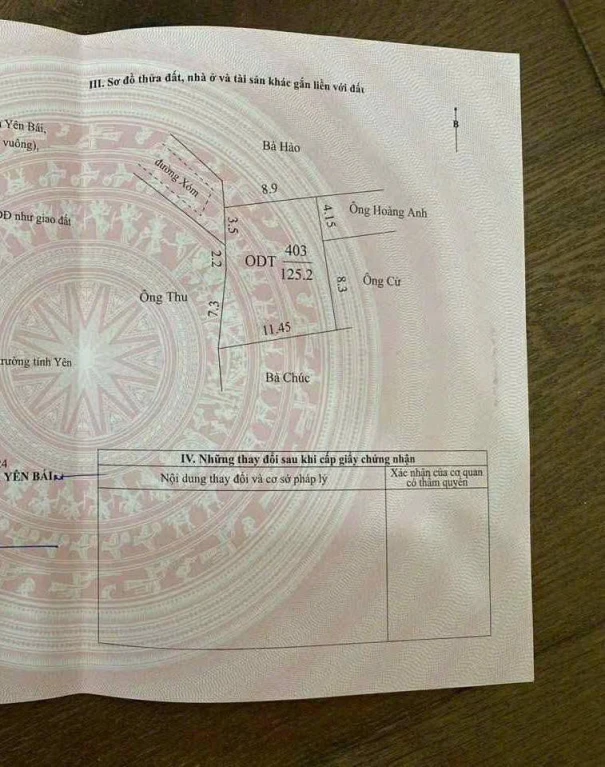 III. Sơ đồ thửa đất, nhà ở và tài sản khác gắn liền với đất
Yên Bái,
vuông),
B
Bà Hảo
đường Xóm
8.9
Ông Hoàng Anh
4.15
3.5
ĐĐ như giao đất
403
ODT
125.2
2.2
8.3
Ông Cừ
Ông Thu
7.3
11.45
trường tỉnh Yên
Bà Chúc
24
YÊN BÁI
IV. Những thay đổi sau khi cấp giấy chứng nhận
Nội dung thay đổi và cơ sở pháp lý
Xác nhận của cơ quan
có thẩm quyền